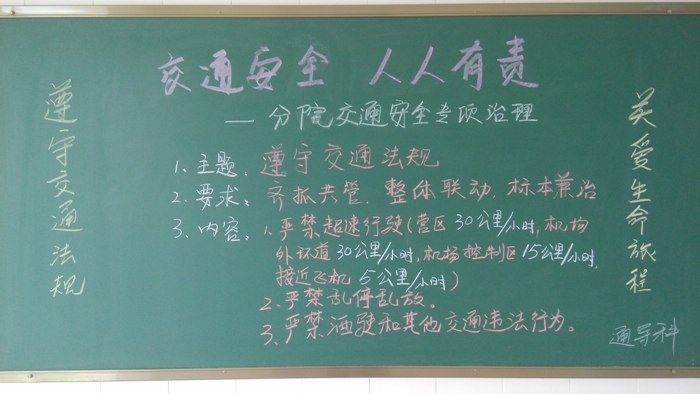 交通安全 人人有责
— 分院交通安全专项治理
遵守交通法规
1. 主题: 遵守交通法规
2. 要求: 齐抓共管. 整体联动. 标本兼治
3. 内容: 1. 严禁超速行驶(营区30公里/小时, 机场
外环道30公里/小时, 机场控制区15公里/小时,
接近飞机 5公里/小时)
2. 严禁乱停乱放。
3. 严禁酒驶和其他交通违法行为。
关爱生命旅程
通导科